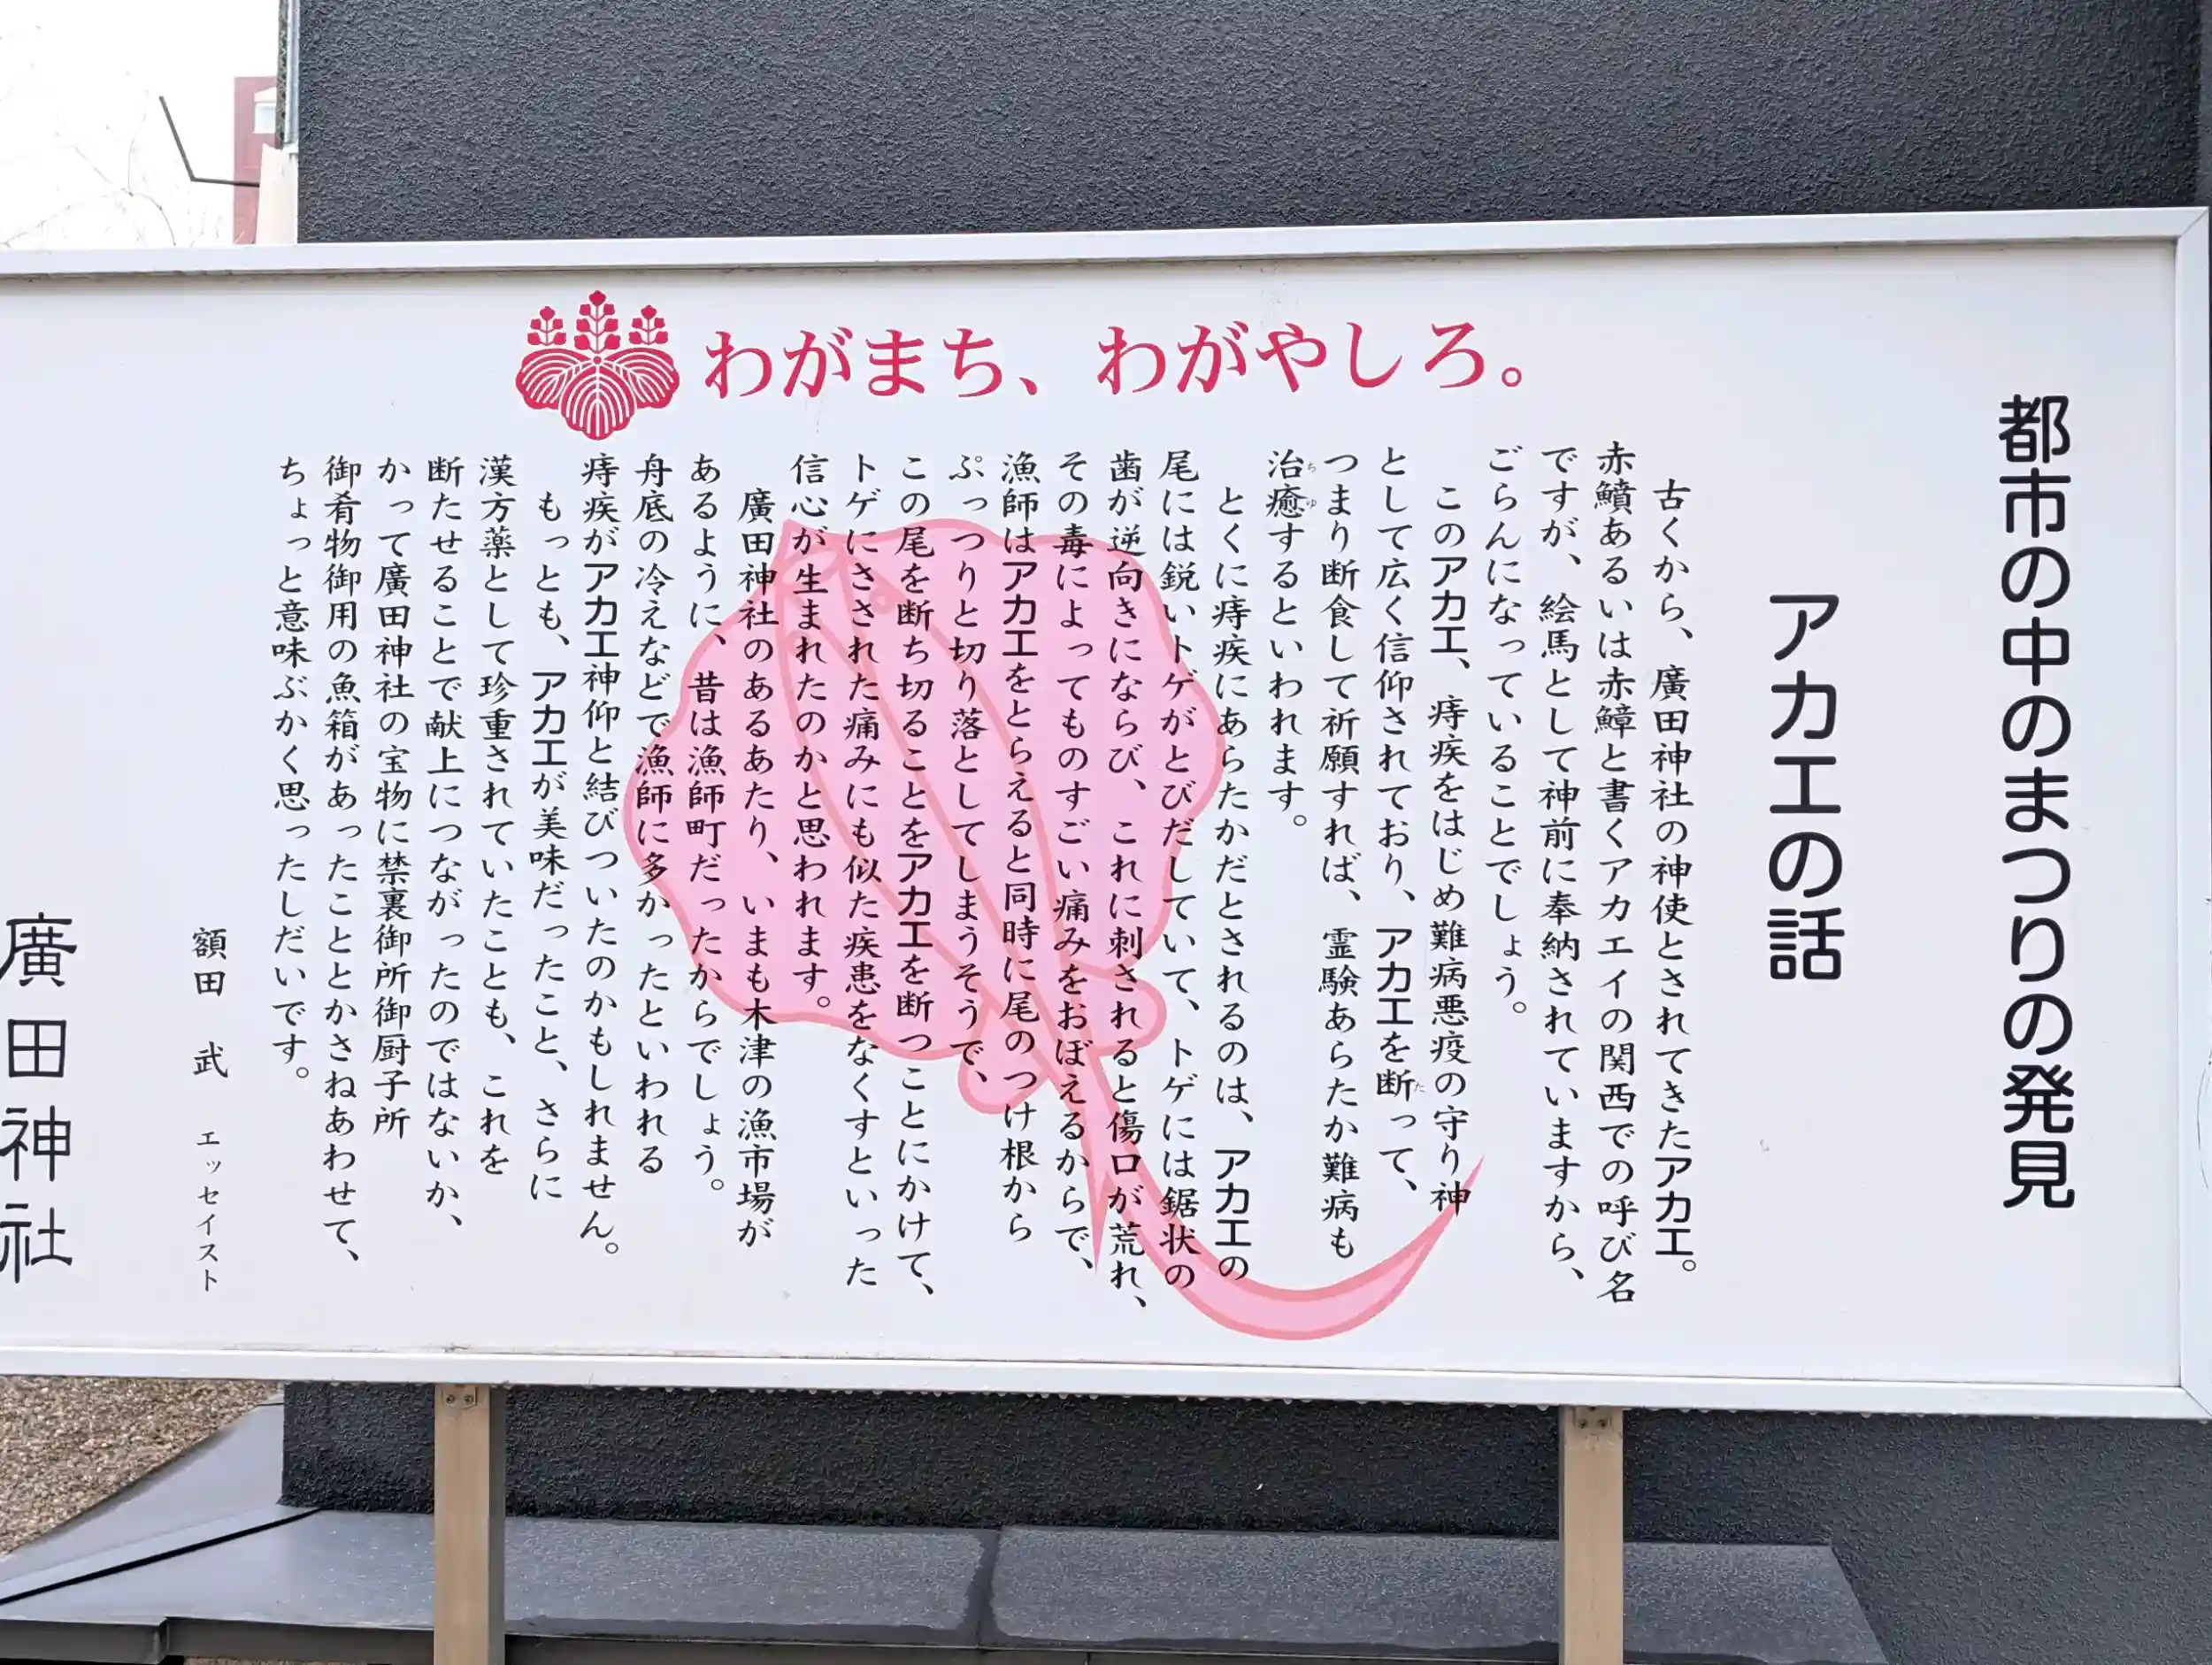 わがまち、わがやしろ。
都市の中のまつりの発見
アカエの話
古くから、廣田神社の神使とされてきたアカエ。
赤鱝あるいは赤鱆と書くアカエイの関西での呼び名
ですが、絵馬として神前に奉納されていますから、
ごらんになっていることでしょう。
このアカエ、痔疾をはじめ難病悪疫の守り神
として広く信仰されており、アカエを断って、
つまり断食して祈願すれば、霊験あらたか難病も
治癒するといわれます。
とくに痔疾にあらたかだとされるのは、アカエの
尾には鋭いトゲがとびだしていて、トゲには鋸状の
歯が逆向きにならび、これに刺されると傷口が荒れ、
その毒によってものすごい痛みをおぼえるからで、
漁師はアカエをとらえると同時に尾のつけ根から
ぷっつりと切り落としてしまうそうで、
この尾を断ち切ることをアカエを断つことにかけて、
トゲにさされた痛みにも似た疾患をなくすといった
信心が生まれたのかと思われます。
廣田神社のあるあたり、いまも木津の漁市場が
あるように、昔は漁師町だったからでしょう。
舟底の冷えなどで漁師に多かったといわれる
痔疾がアカエ神仰と結びついたのかもしれません。
もっとも、アカエが美味だったこと、さらに
漢方薬として珍重されていたことも、これを
断たせることで献上につながったのではないか、
かって廣田神社の宝物に禁裏御所御厨子所
御肴物御用の魚箱があったこととかさねあわせて、
ちょっと意味ぶかく思ったしだいです。
額田 武 エッセイスト
廣田神社